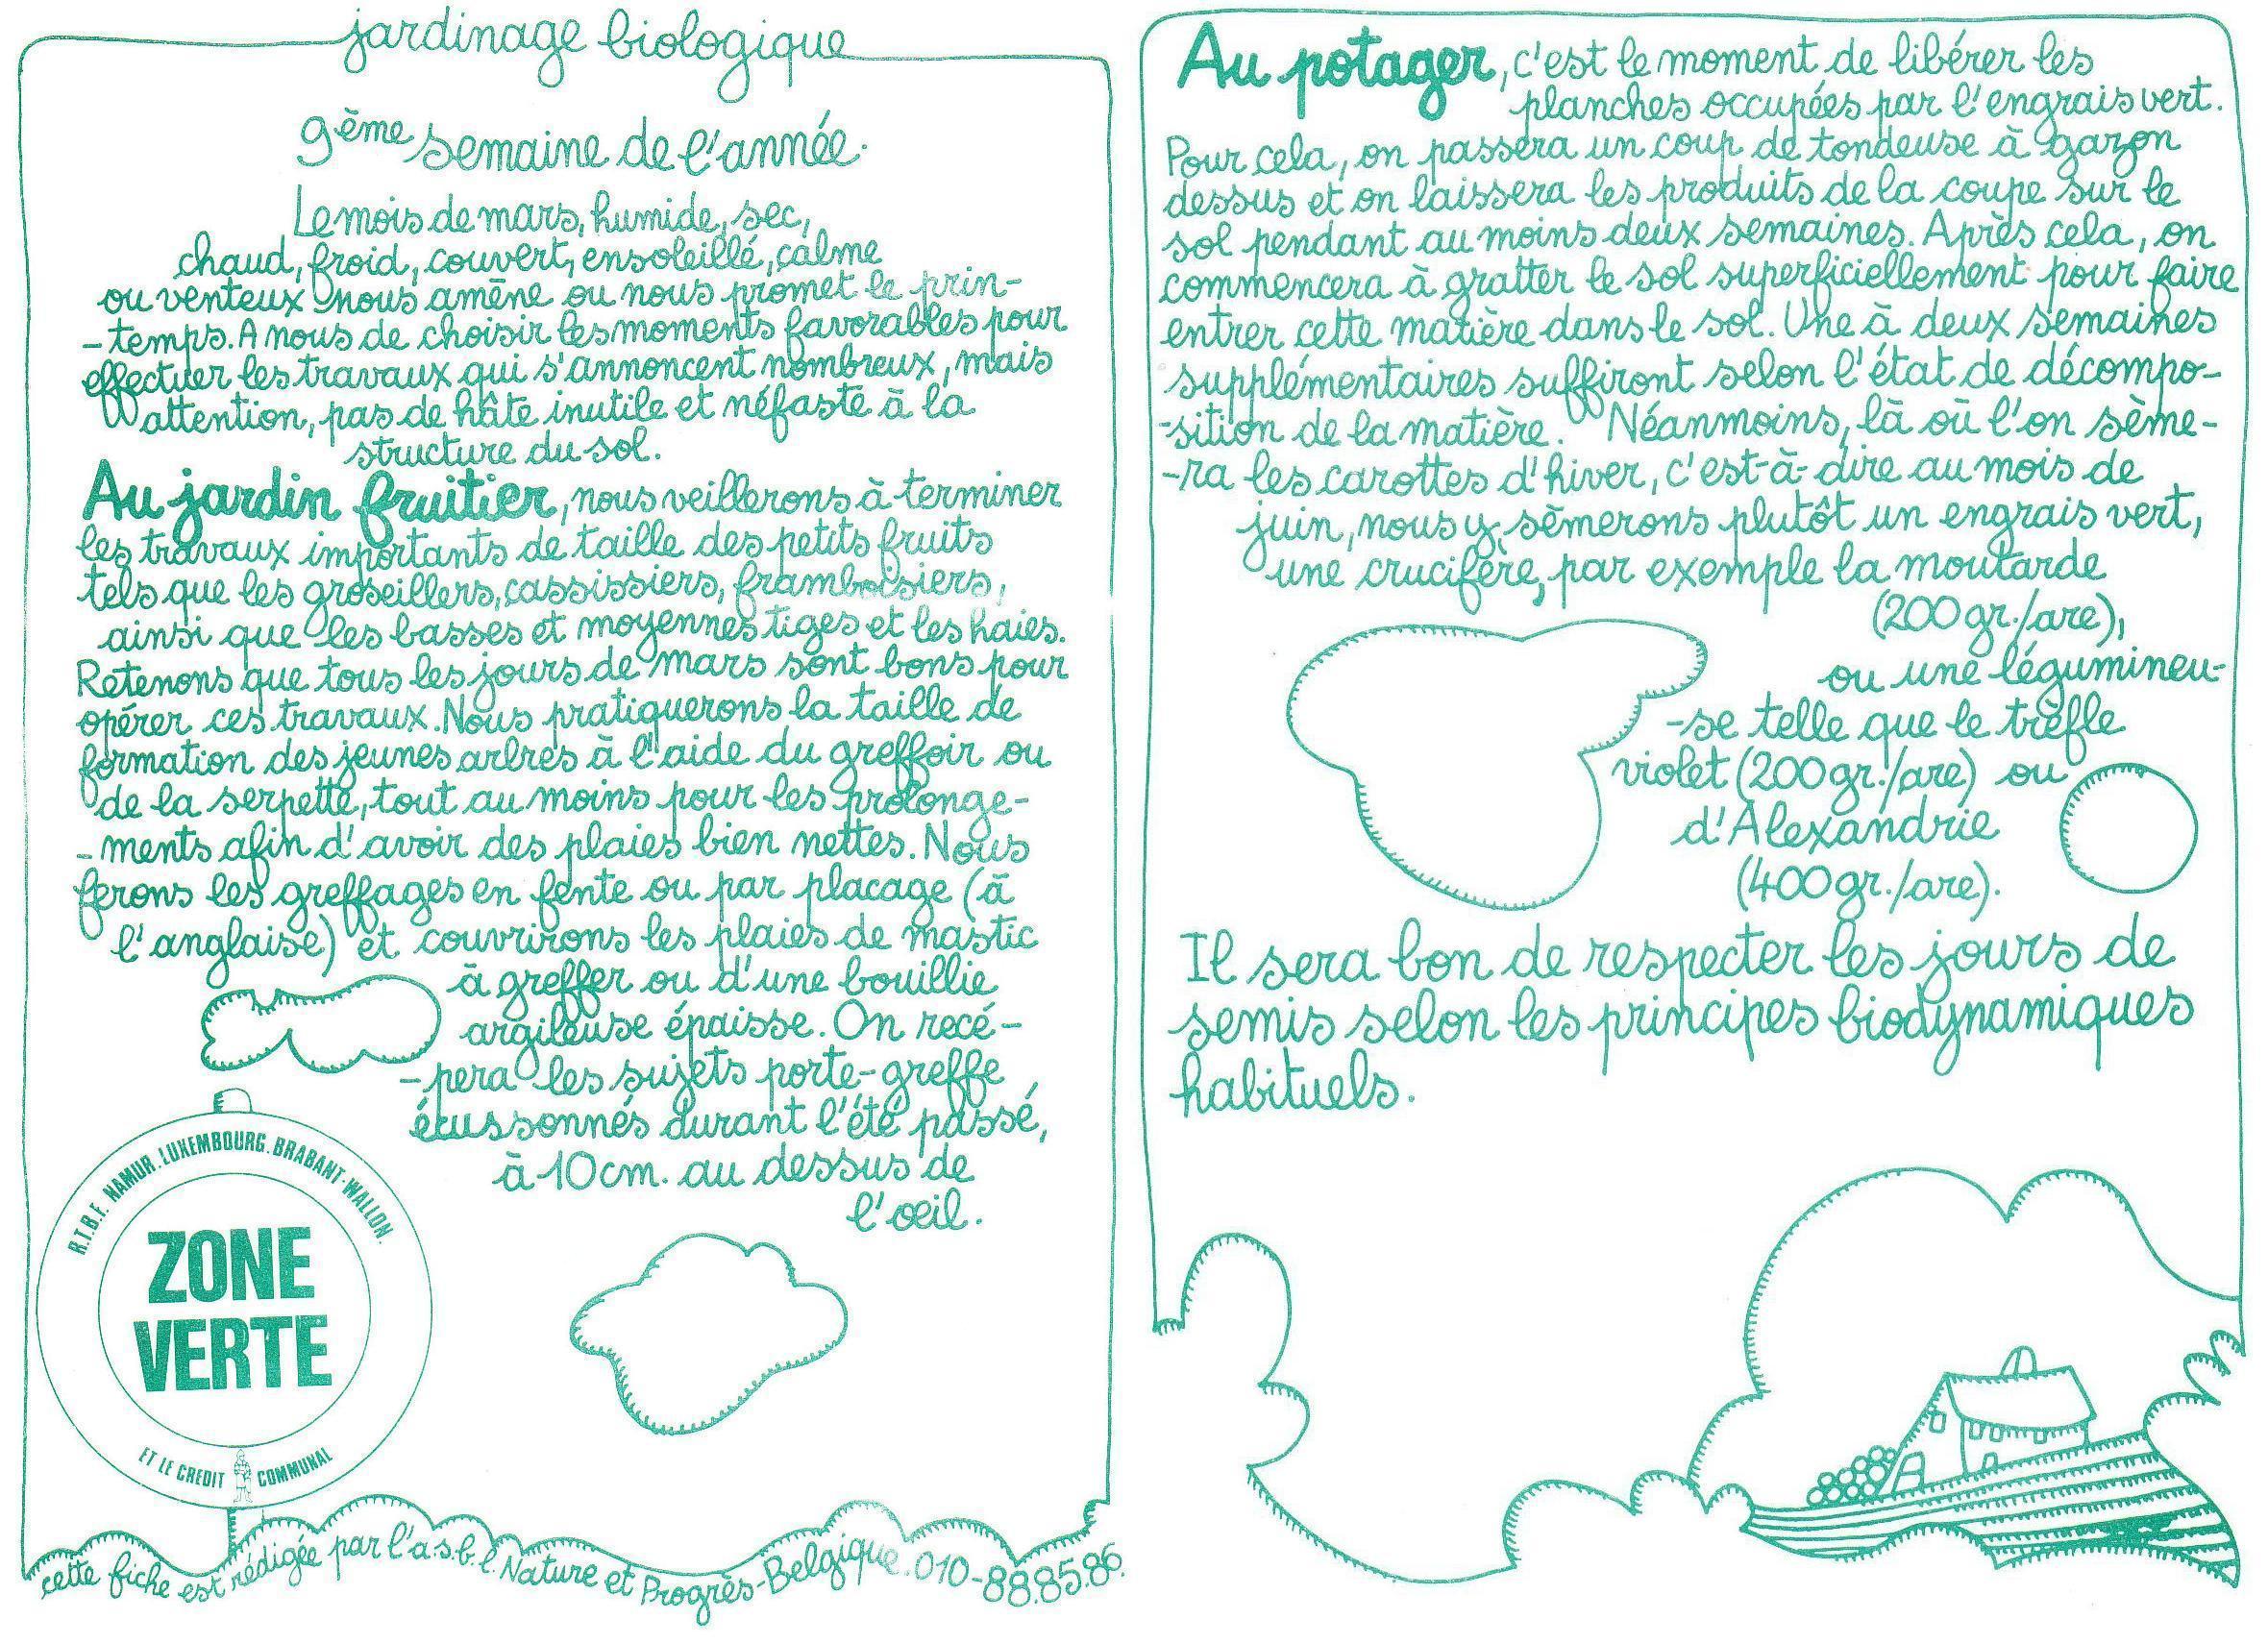 jardinage biologique
9ème semaine de l'année.
Le mois de mars, humide, sec,
chaud, froid, couvert, ensoleillé, calme
ou venteux nous amène ou nous promet le prin-
-temps. A nous de choisir les moments favorables pour
effectuer les travaux qui s'annoncent nombreux, mais
attention, pas de hâte inutile et néfaste à la
structure du sol.
Au jardin fruitier, nous veillerons à terminer
les travaux importants de taille des petits fruits
tels que les groseillers, cassissiers, framboisiers,
ainsi que les basses et moyennes tiges et les haies.
Retenons que tous les jours de mars sont bons pour
opérer ces travaux. Nous pratiquerons la taille de
formation des jeunes arbres à l'aide du greffoir ou
de la serpette, tout au moins pour les prolonge-
-ments afin d'avoir des plaies bien nettes. Nous
ferons les greffages en fente ou par placage (à
l'anglaise) et couvrirons les plaies de mastic
à greffer ou d'une bouillie
argileuse épaisse. On recé-
-pera les sujets porte-greffe
écussonnés durant l'été passé,
à 10cm. au dessus de
l'oeil.
R.T.B.F. NAMUR. LUXEMBOURG. BRABANT-WALLON.
ZONE
VERTE
ET LE CREDIT COMMUNAL
cette fiche est rédigée par l'a.s.b.l. Nature et Progrès-Belgique. 010-88.85.86.
Au potager, c'est le moment de libérer les
planches occupées par l'engrais vert.
Pour cela, on passera un coup de tondeuse à gazon
dessus et on laissera les produits de la coupe sur le
sol pendant au moins deux semaines. Après cela, on
commencera à gratter le sol superficiellement pour faire
entrer cette matière dans le sol. Une à deux semaines
supplémentaires suffiront selon l'état de décompo-
-sition de la matière. Néanmoins, là où l'on sème-
-ra les carottes d'hiver, c'est-à-dire au mois de
juin, nous y sèmerons plutôt un engrais vert,
une crucifère, par exemple la moutarde
(200gr./are),
ou une légumineu-
-se telle que le trèfle
violet (200gr./are) ou
d'Alexandrie
(400gr./are).
Il sera bon de respecter les jours de
semis selon les principes biodynamiques
habituels.